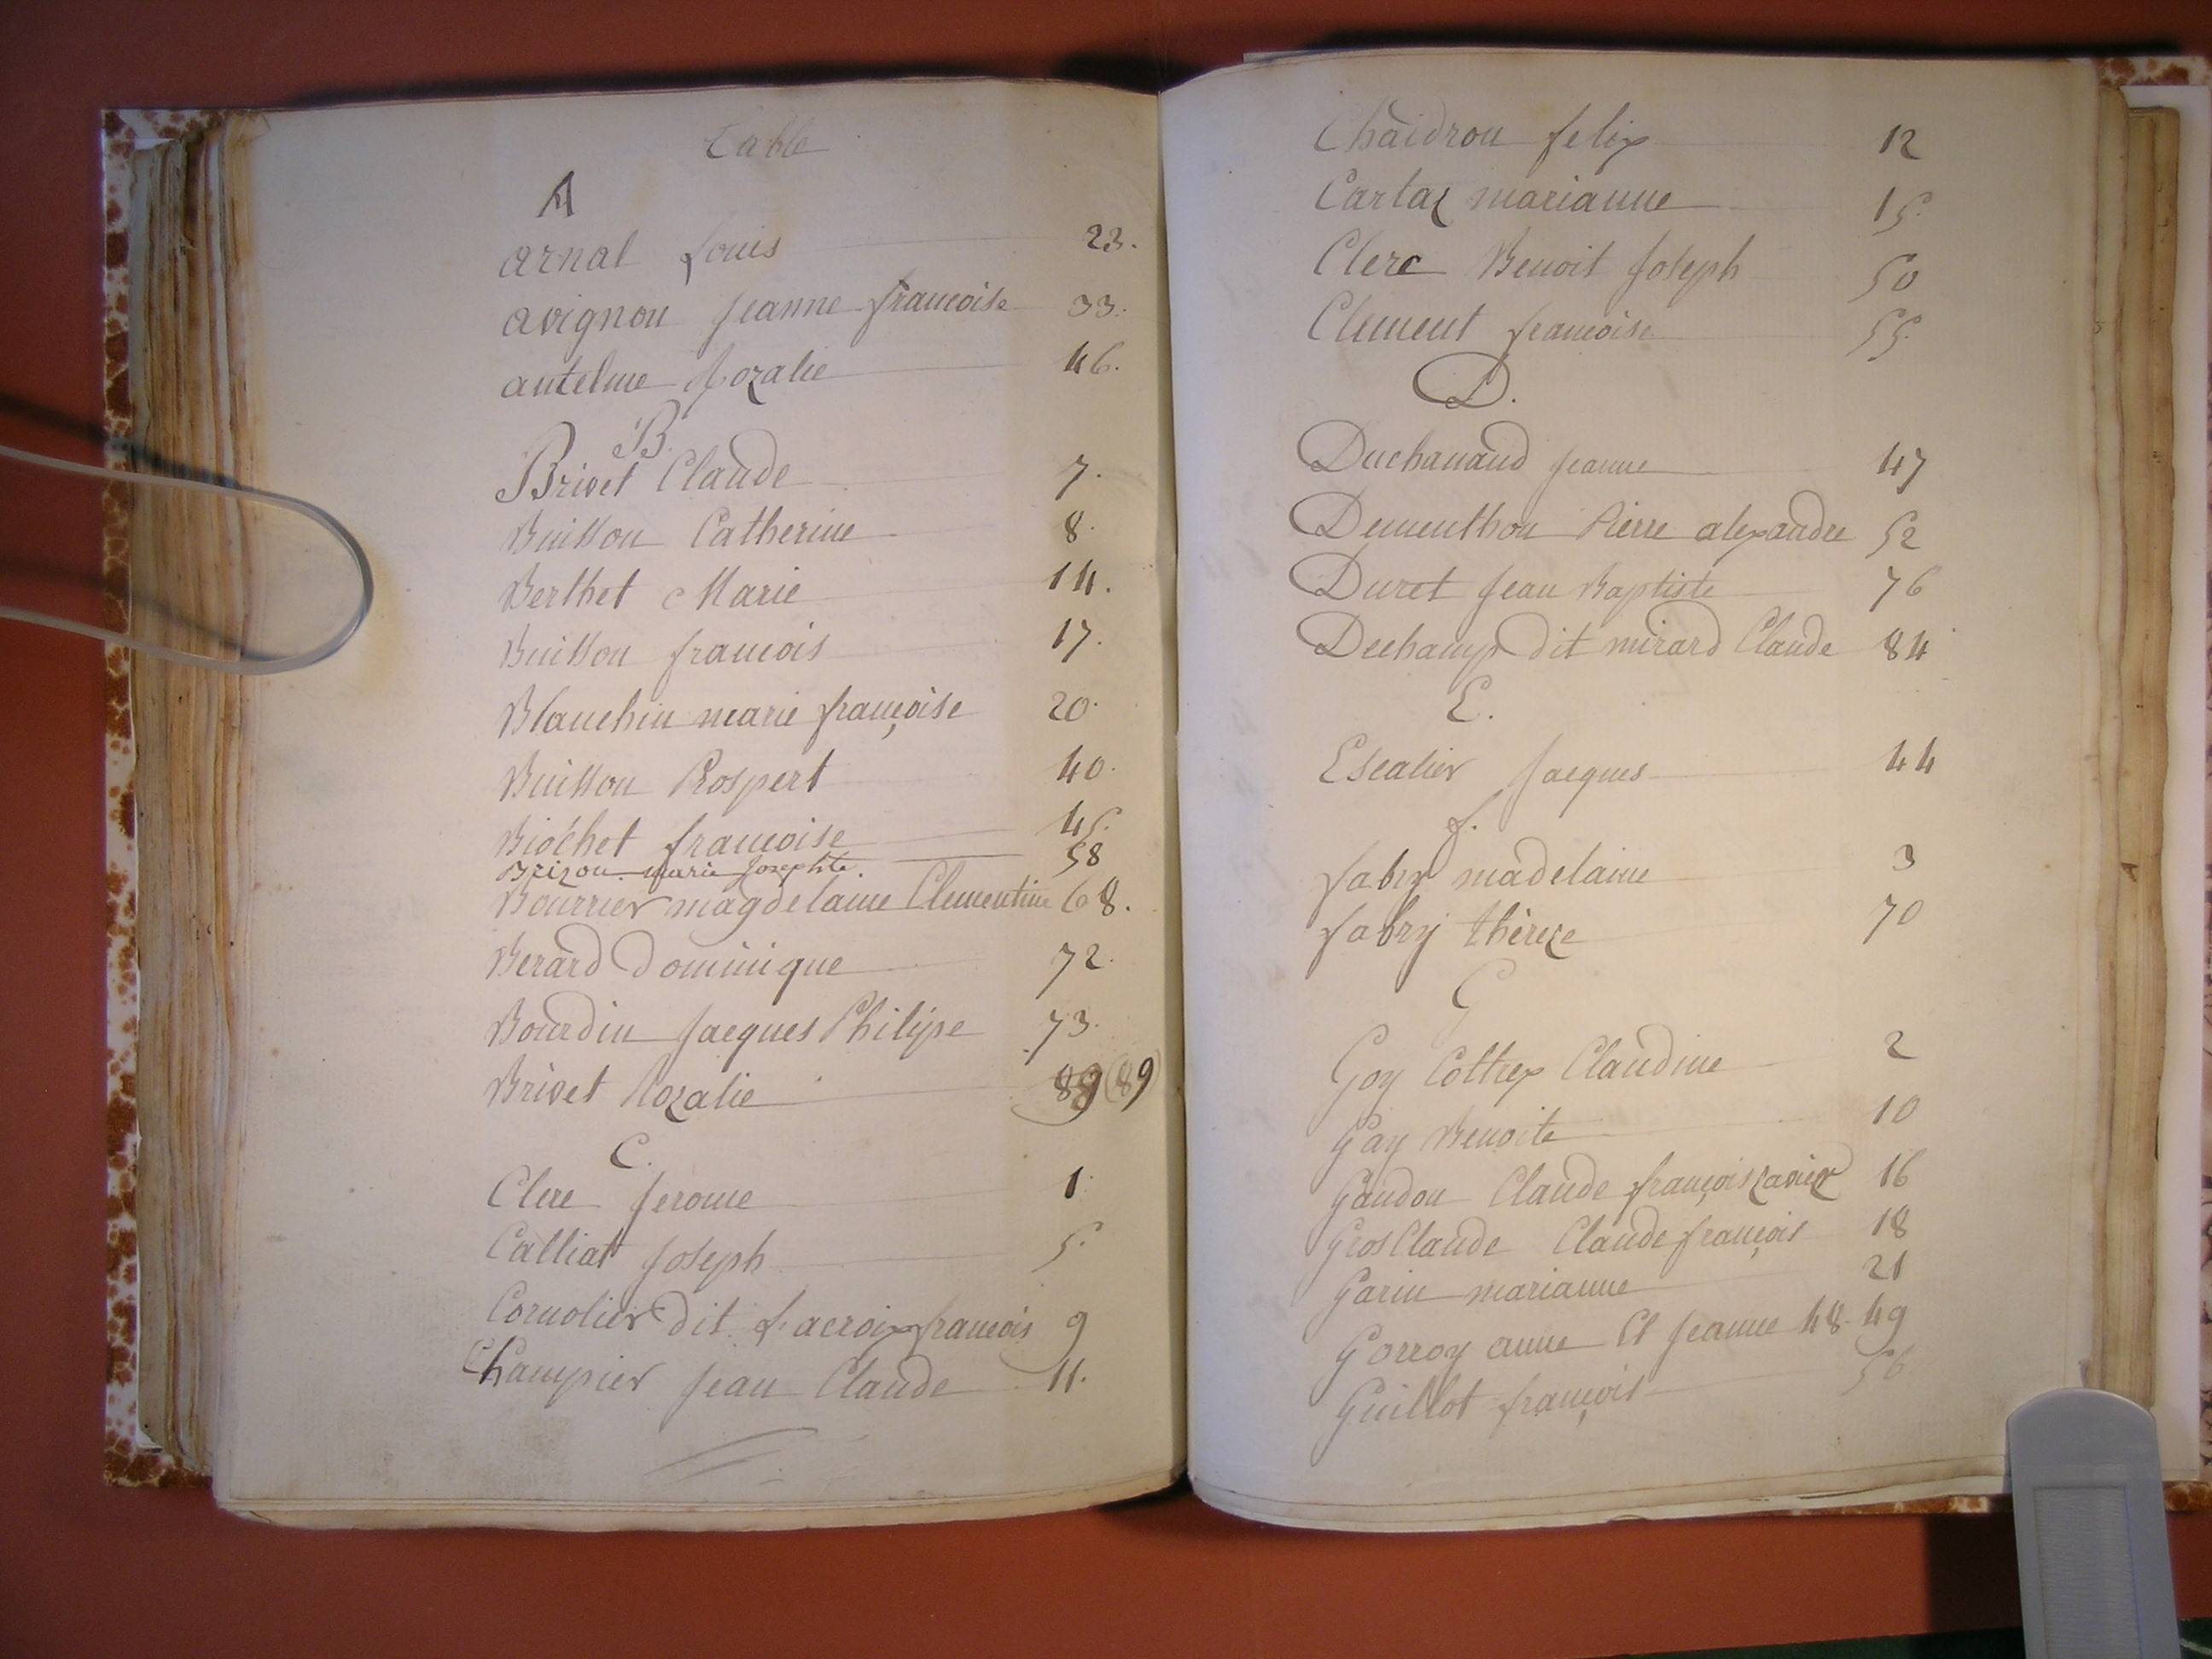 Table
A
arnal Louis 23.
avignon jeanne francoise 33.
antelme Rozalie 46.
B.
Brivet Claude 7.
Buisson Catherine 8.
Berthet Marie 14.
Buisson francois 17.
Blanchin marie françoise 20.
Buisson Prospert 40.
Biochet francoise 45.
Brizon marie Josephte. 58
Bourrier magdelaine Clementine 68.
Berard Dominique 72.
Bourdin Jacques Philipe 73.
Brivet Rozalie 89 (89)
C.
Clerc Jerome 1.
Calliat Joseph 5.
Cornolier dit Lacroix francois 9
Champier Jean Claude 11.
Chaidron felix 12
Cartaz marianne 15.
Clerc Benoit Joseph 50
Clement francoise 55.
D.
Duchanaud jeanne 47
Dementhon Pierre alexandre 52
Duret Jean Baptiste 76
Dechamp dit mirard Claude 84
E.
Escalier Jacques 44
f.
fabry madelaine 3
fabry thèreze 70
G
Goy Cottrex Claudine 2
Gay Benoite 10
Gandon Claude françois Xavier 16
Gros Claude Claude françois 18
Garin marianne 21
Gorroy anne Et Jeanne 48. 49
Guillot françois 56